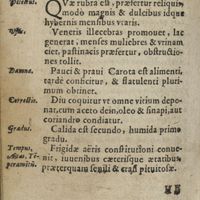 Delectus. Quæ rubra est, præsertim reliquis
modo magnis & dulcibus idque
hybernis mensibus vtaris.
Vsus. Veneris illecebras promouet, lac
generat, menses muliebres & vrinam
ciet, pastinacis præfertur, obstructio-
nes tollit.
Damna. Pauci & praui Carota est alimenti,
tarde conficitur, & flatulenti pluri-
mum obtinet.
Correctio. Diu coquitur vt omne vitium depo-
nat, cum aceto dein, oleo & sinapi, aut
coriandro condiatur.
Gradus. Calida est secundo, humida primo
gradu.
Tempus, Frigidæ aëris constitutioni conue-
Aetas, Tē- nit, iuuenibus cæterisque ætatibus
peramētū. præterquam senili & crasi pituitosæ.